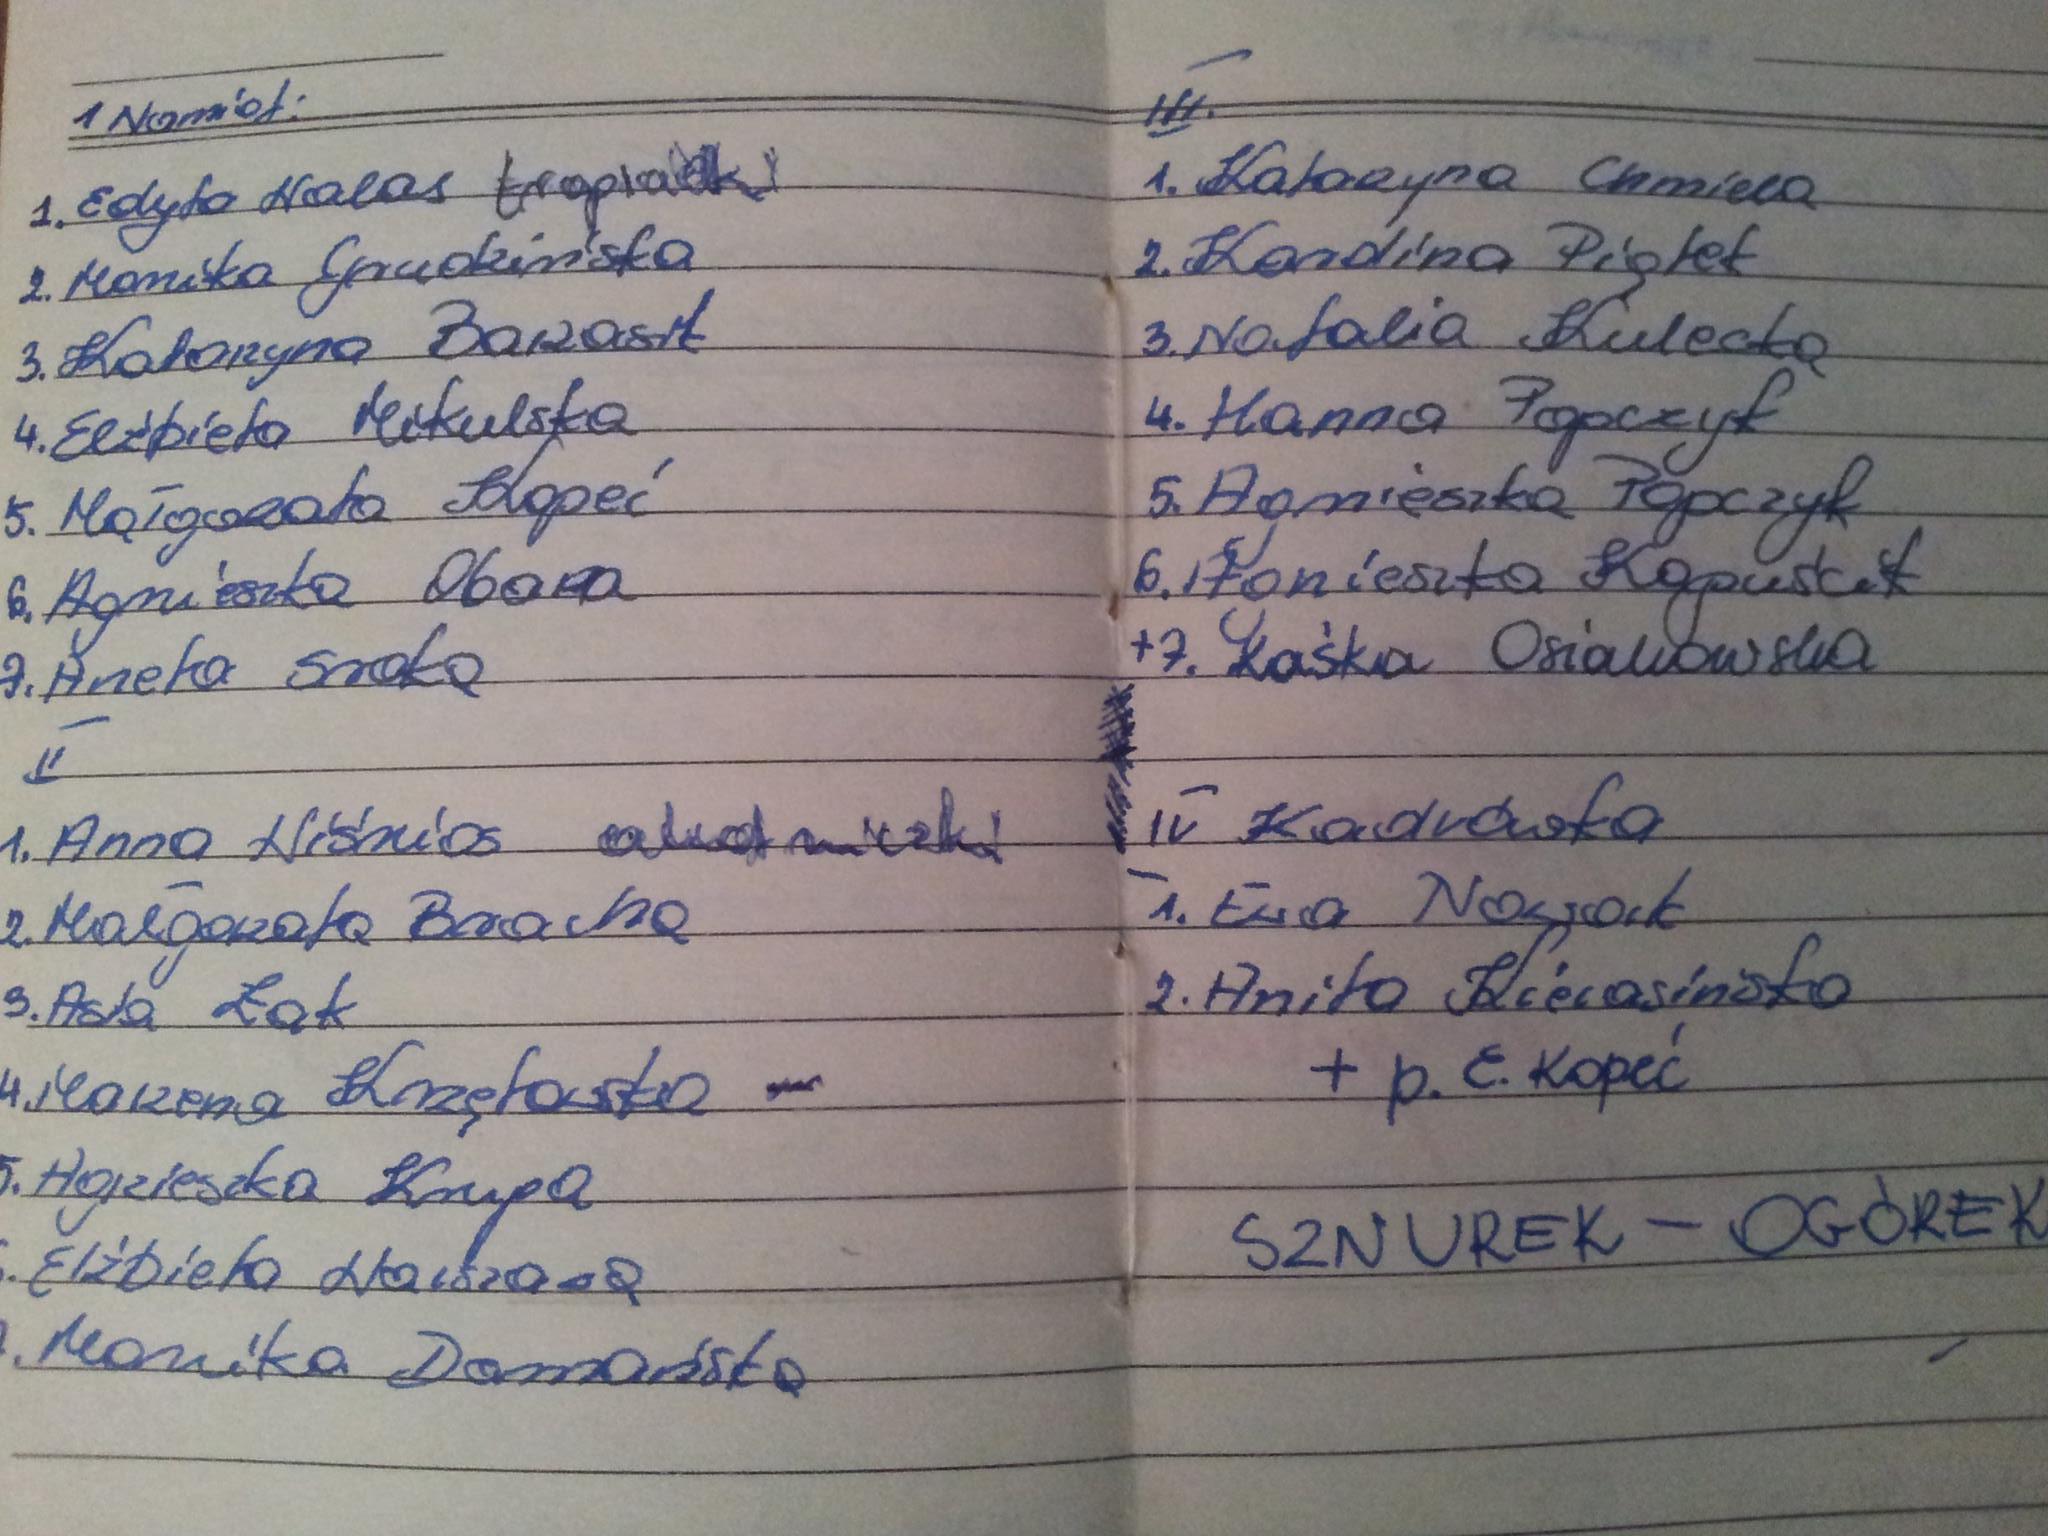 1 Namiot:
1. Edyta Halas
2. Monika Grudzińska
3. Katarzyna
4. Elżbieta Mikulska
5. Małgorzata Kopeć
6. Agnieszka Obara
7. Aneta Sroka
II
1. Anna Wiśnios
2. Małgorzata Bracha
3. Asia Żak
4. Marzena Krzętowska
5. Agnieszka Krupa
6. Elżbieta
7. Monika Domańska
III.
1. Katarzyna Chmiela
2. Karolina Piątek
3. Natalia Kulecka
4. Hanna Popczyk
5. Agnieszka Popczyk
6. Agnieszka Kapuścik
+7. Kaśka Osiakowska
IV Kadrówka
1. Ewa Nowak
2. Anita
+ p. E. Kopeć
SZNUREK - OGÓREK